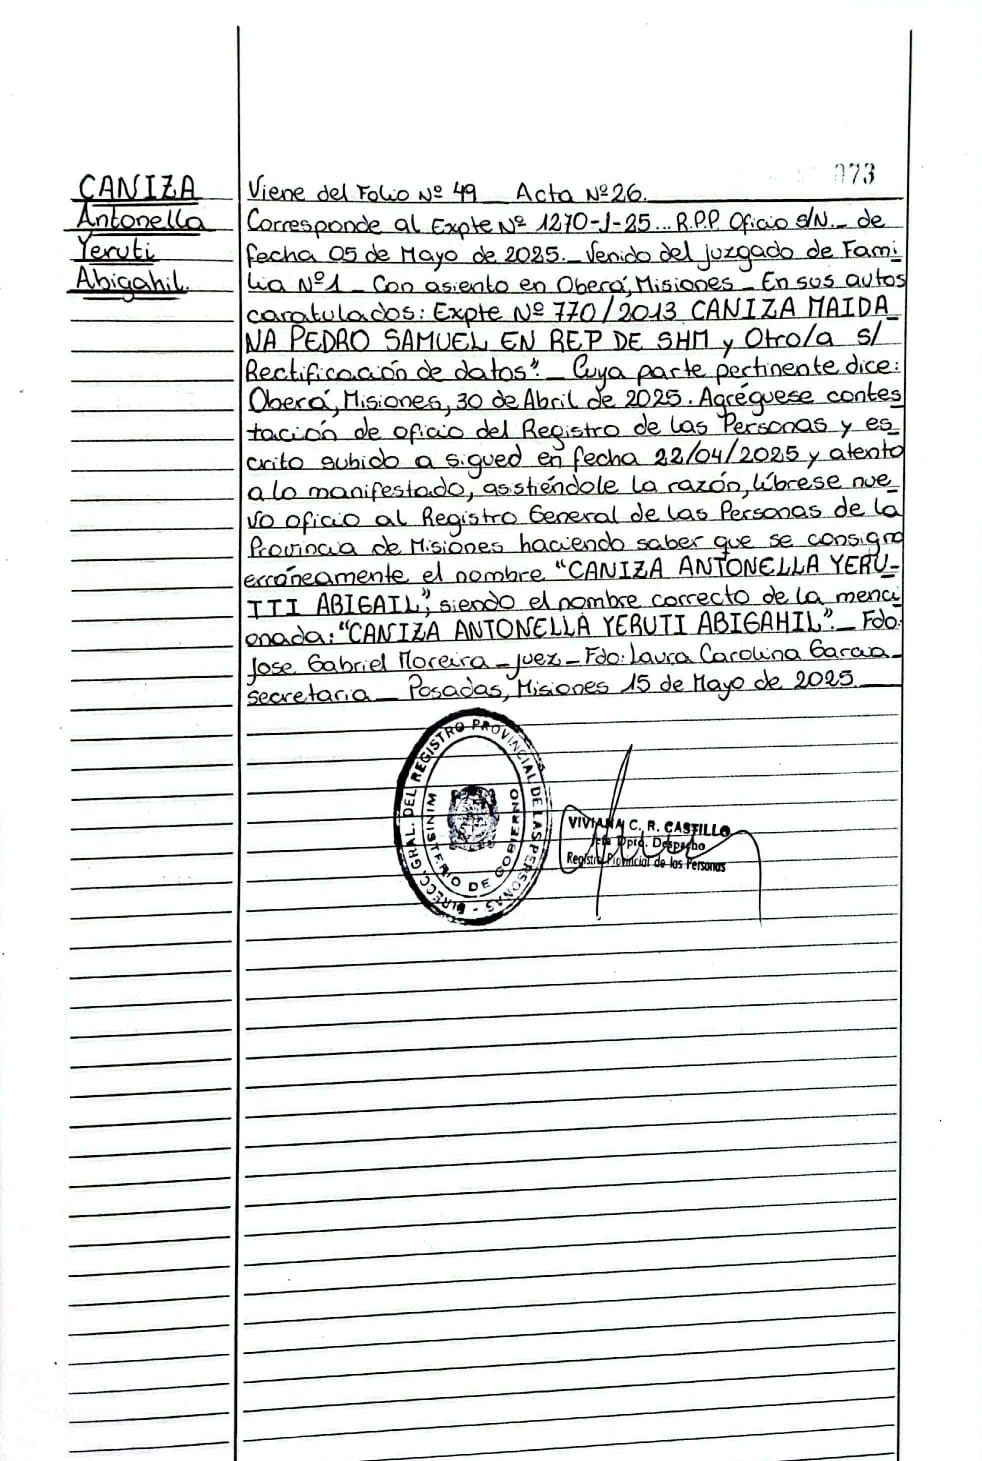 073
CANIZA
Antonella
Yeruti
Abigahil.
Viene del Folio Nº 49 _ Acta Nº 26.
Corresponde al Expte Nº 1270-J-25... R.P.P. Oficio s/N._ de
fecha 05 de Mayo de 2025._ Venido del juzgado de Fami_
lia Nº1 _ Con asiento en Oberá, Misiones _ En sus autos
caratulados: Expte Nº 770/2013 CANIZA MAIDA_
NA PEDRO SAMUEL EN REP DE SHM y Otro/a s/
Rectificación de datos". _ Cuya parte pertinente dice:
Oberá, Misiones, 30 de Abril de 2025. Agréguese contes
tación de oficio del Registro de las Personas y es_
crito subido a sigued en fecha 22/04/2025 y atento
a lo manifestado, asistiéndole la razón, líbrese nue_
vo oficio al Registro General de las Personas de la
Provincia de Misiones haciendo saber que se consignó
erróneamente el nombre "CANIZA ANTONELLA YERU-
ITI ABIGAIL", siendo el nombre correcto de la menci
onada: "CANIZA ANTONELLA YERUTI ABIGAHIL". _ Fdo:
Jose Gabriel Moreira _ juez _ Fdo: Laura Carolina Garcia_
secretaria _ Posadas, Misiones 15 de Mayo de 2025
DIRECC. GRAL. DEL REGISTRO PROVINCIAL DE LAS PERSONAS -
MINISTERIO DE GOBIERNO
VIVIANA C. R. CASTILLO
Jefa Dpto. Despacho
Registro Provincial de las Personas